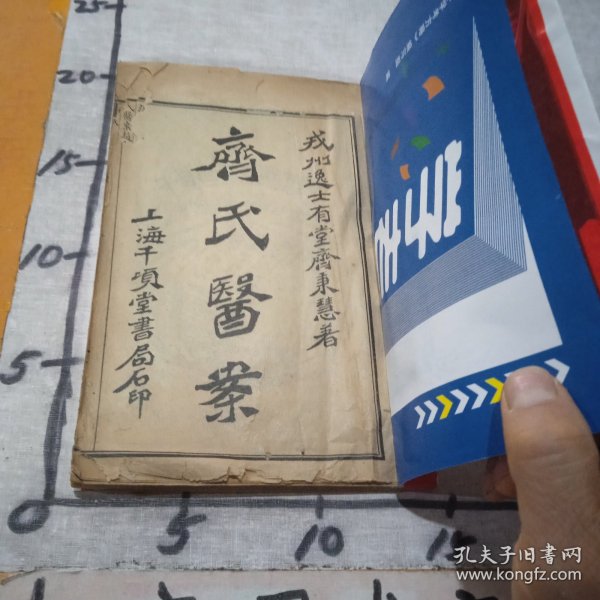 戎州逸士有堂齊秉慧著
齊氏醫案
上海千頃堂書局石印
25
20
15
10
5
0
5
10
15
孔夫子旧书网
www.kongfz.com